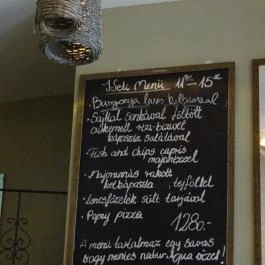 Heti Menü 11³⁰-15³⁰
• Burgonya leves kolbásszal
• Sajttal sonkával töltött
csirkemell rizi-bizivel
káposzta salátával
• Fish and chips capris
majonézzel
• Majorannás rakott
kelkáposzta, tejföllel
• Lencsefőzelék sült tarjával
• Papry pizza
1280.-
A menü tartalmaz egy savas
vagy mentes natur aqua vizet!